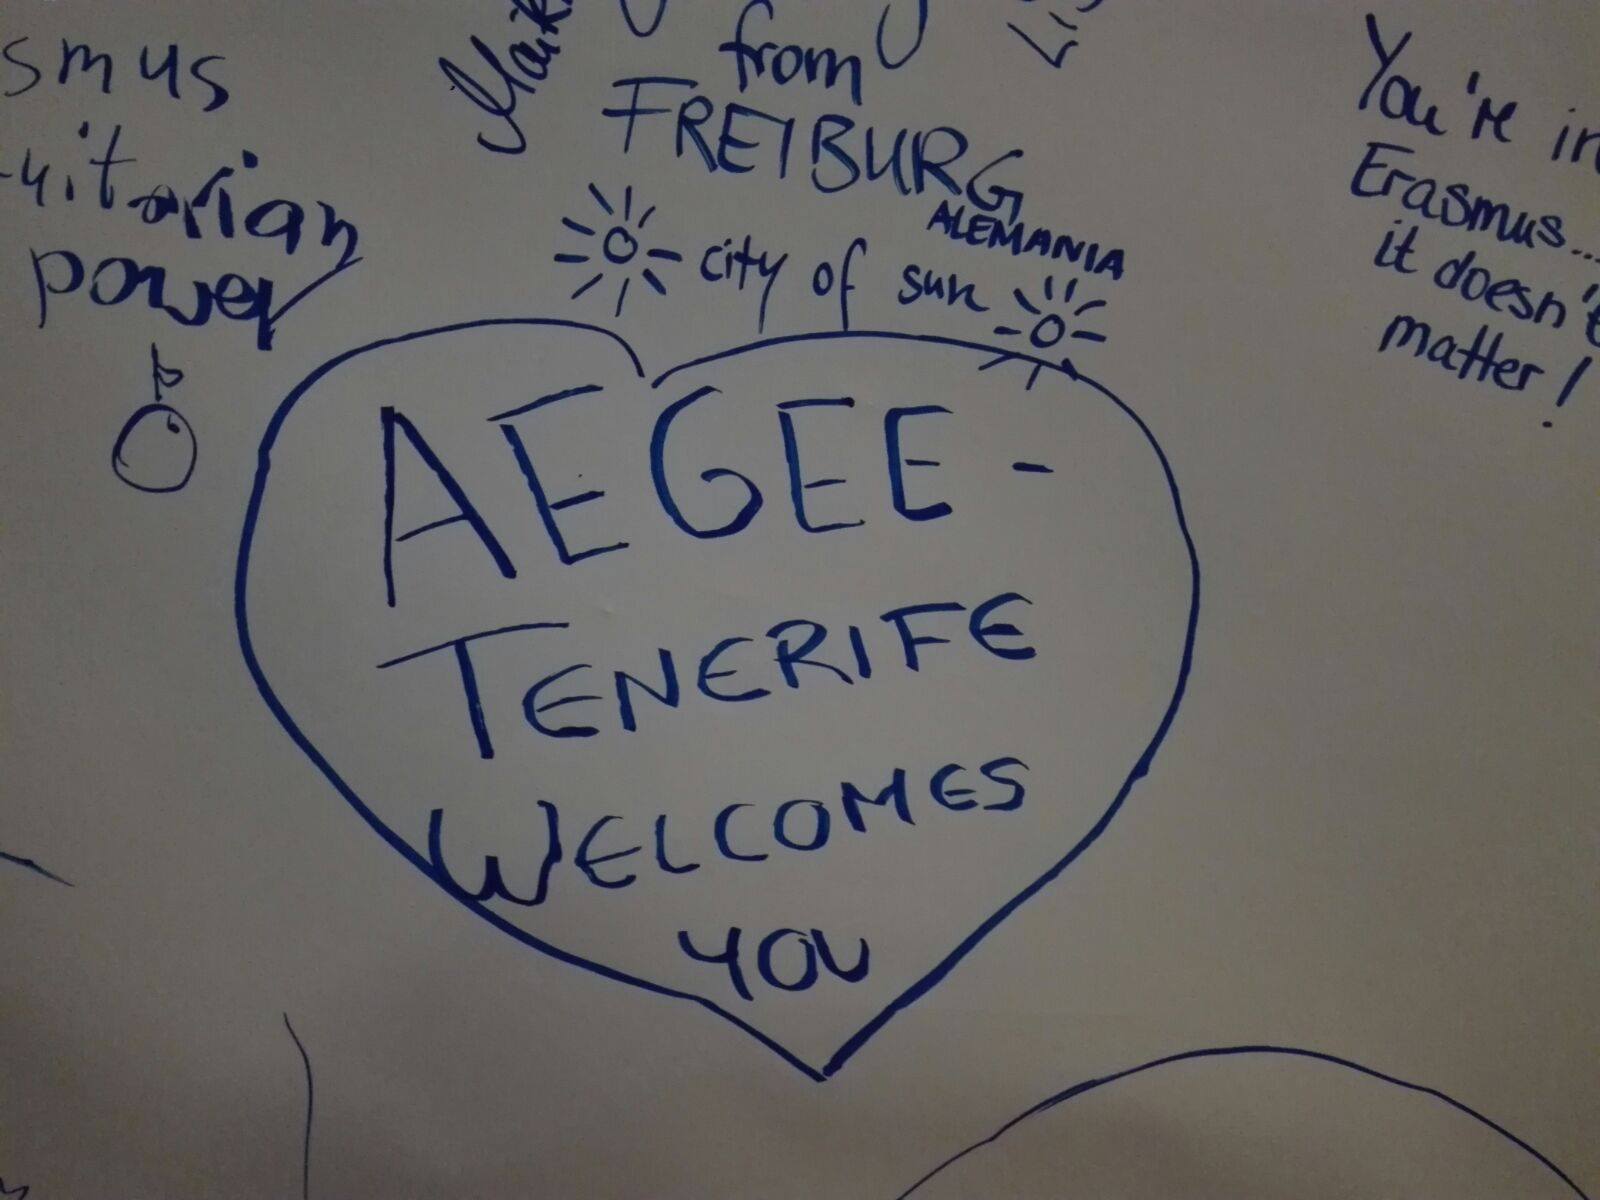 smus
power
from
FREIBURG
ALEMANIA
city of sun
You're in
Erasmus...
it doesn't
matter!
AEGEE -
TENERIFE
WELCOMES
YOU